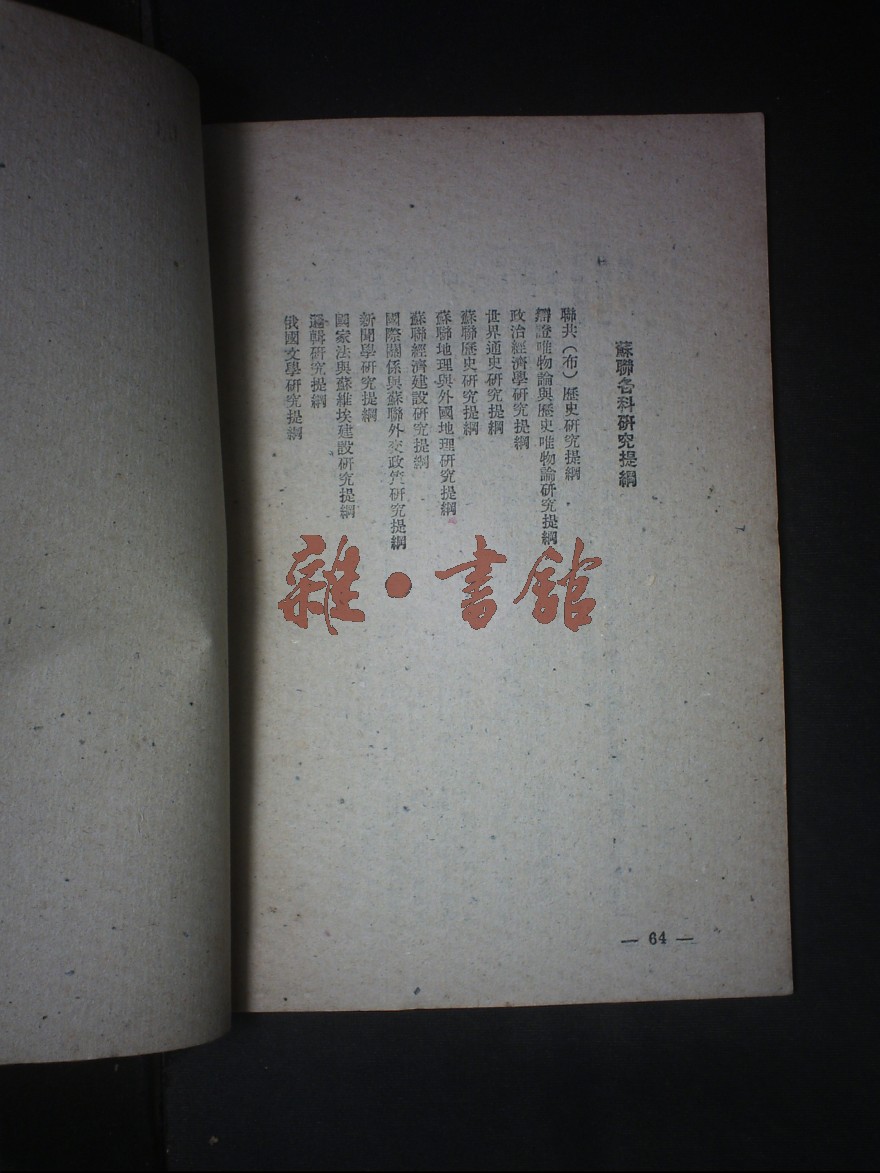 蘇聯各科研究提綱
聯共（布）歷史研究提綱
辯證唯物論與歷史唯物論研究提綱
政治經濟學研究提綱
世界通史研究提綱
蘇聯歷史研究提綱
蘇聯地理與外國地理研究提綱
蘇聯經濟建設研究提綱
國際關係與蘇聯外交政策研究提綱
新聞學研究提綱
國家法與蘇維埃建設研究提綱
邏輯研究提綱
俄國文學研究提綱
雜·書館
— 64 —